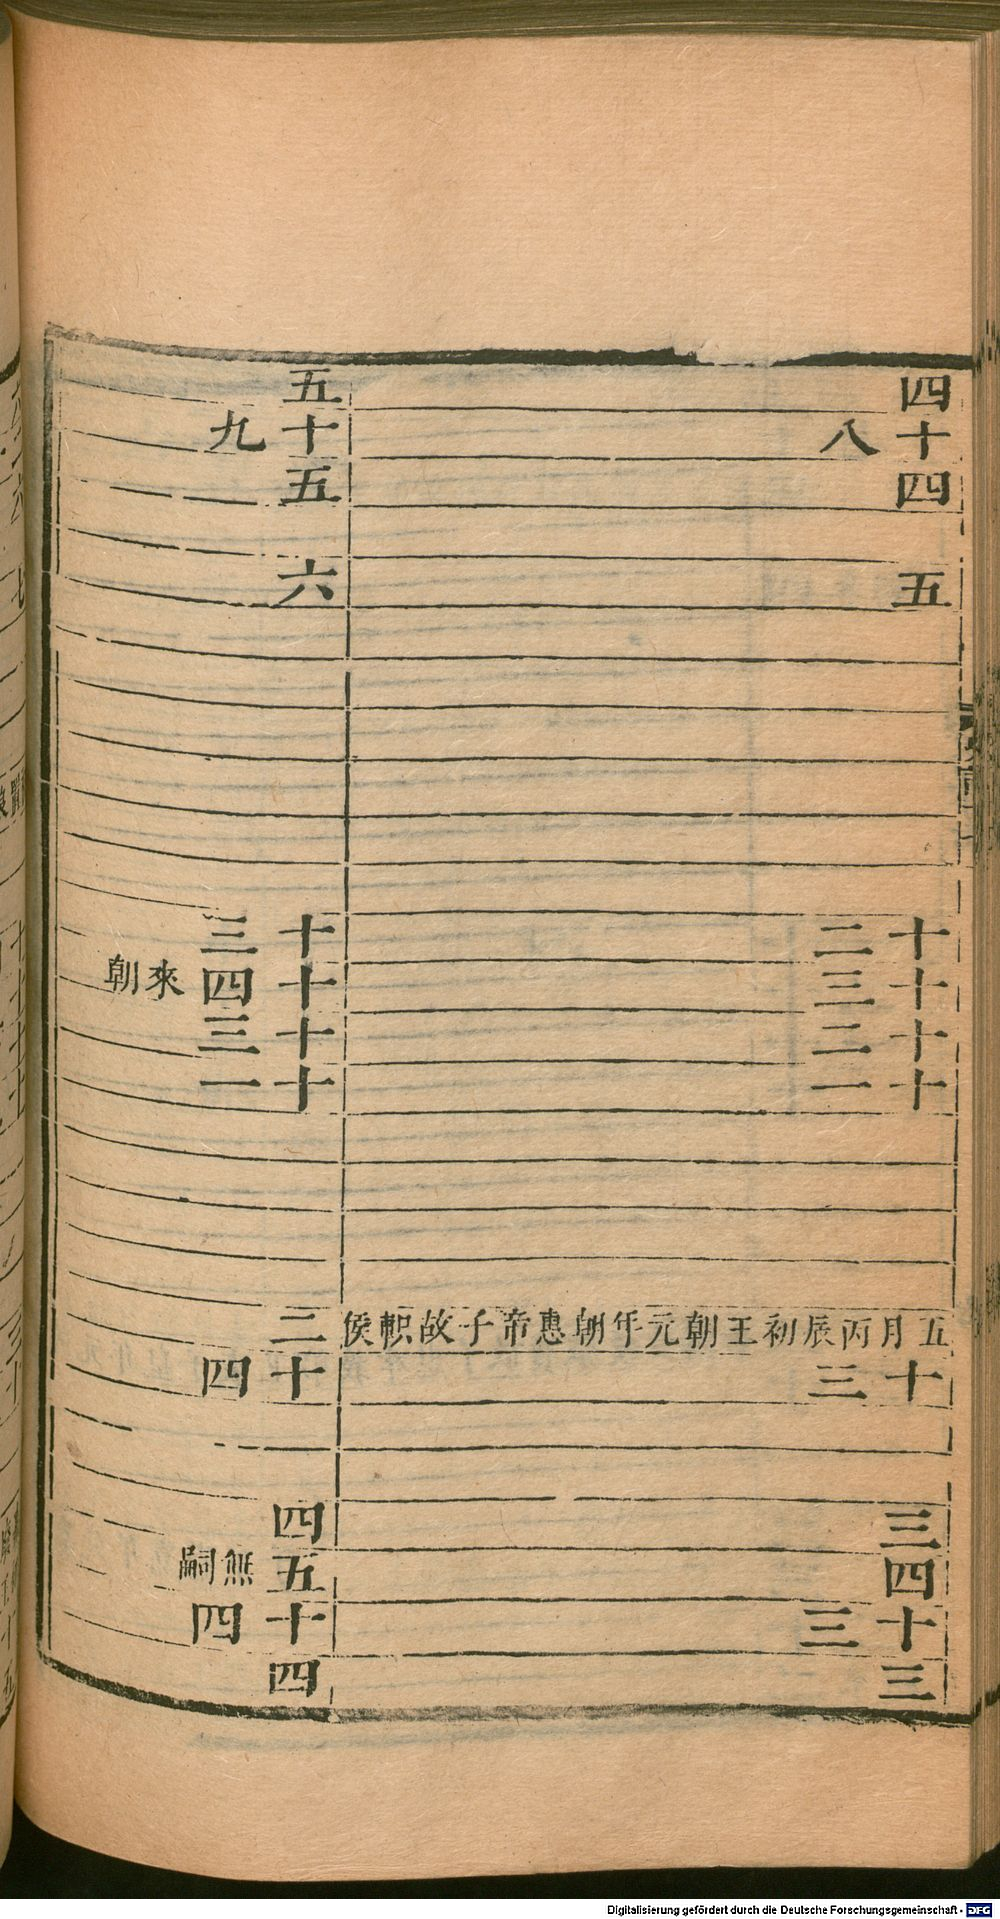 四
十八
四
五
十二
十三
十二
十一
五月丙辰初王朝元年朝惠帝子故軹侯
十三
三
四
十三
三
五
十九
五
六
十三
十四 來朝
十三
十一
二
十四
四
五 無嗣
十四
四
Digitalisierung gefördert durch die Deutsche Forschungsgemeinschaft - DFG